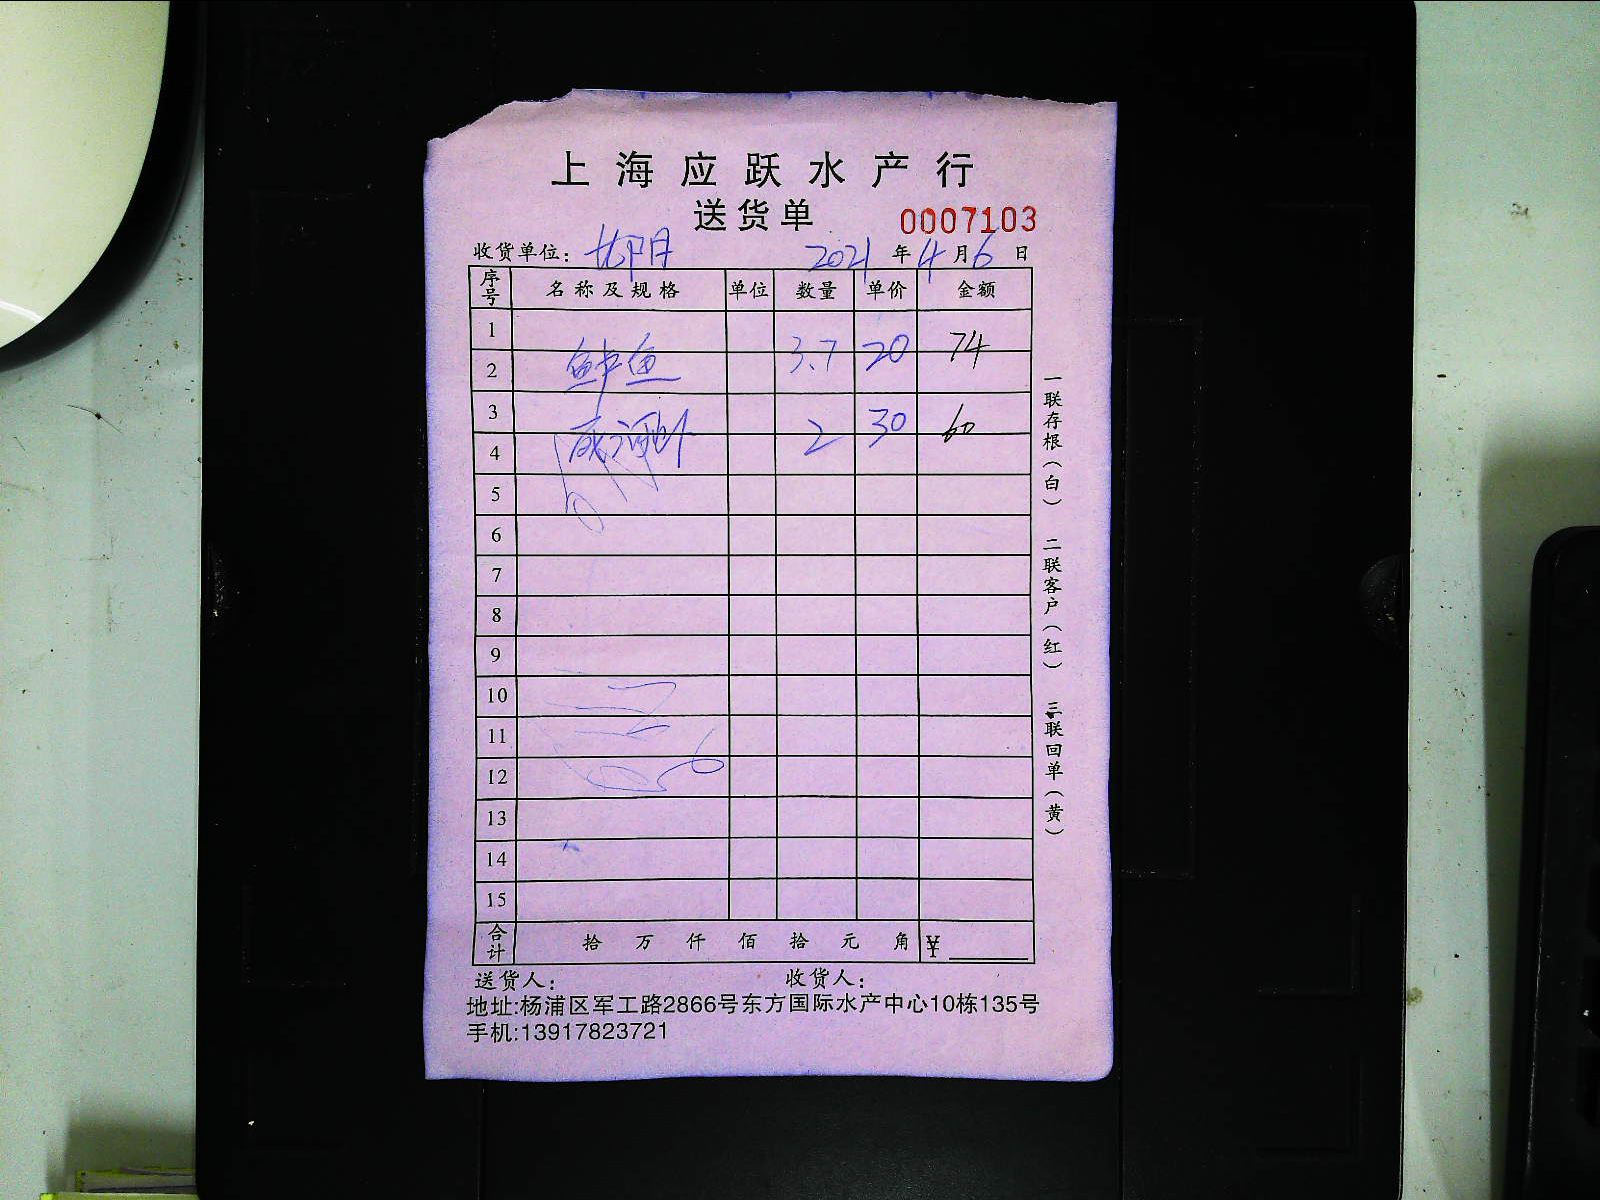 上海应跃水产行
送货单 0007103
收货单位: 2021年4月6日
序号 名称及规格 单位 数量 单价 金额
1
2 鱼 3.7 20 74
3
4 2 30 60
5
6
7
8
9
10
11
12
13
14
15
合计 拾 万 仟 佰 拾 元 角 ¥
送货人: 收货人:
地址:杨浦区军工路2866号东方国际水产中心10栋135号
手机:13917823721
一联存根(白) 二联客户(红) 三联回单(黄)